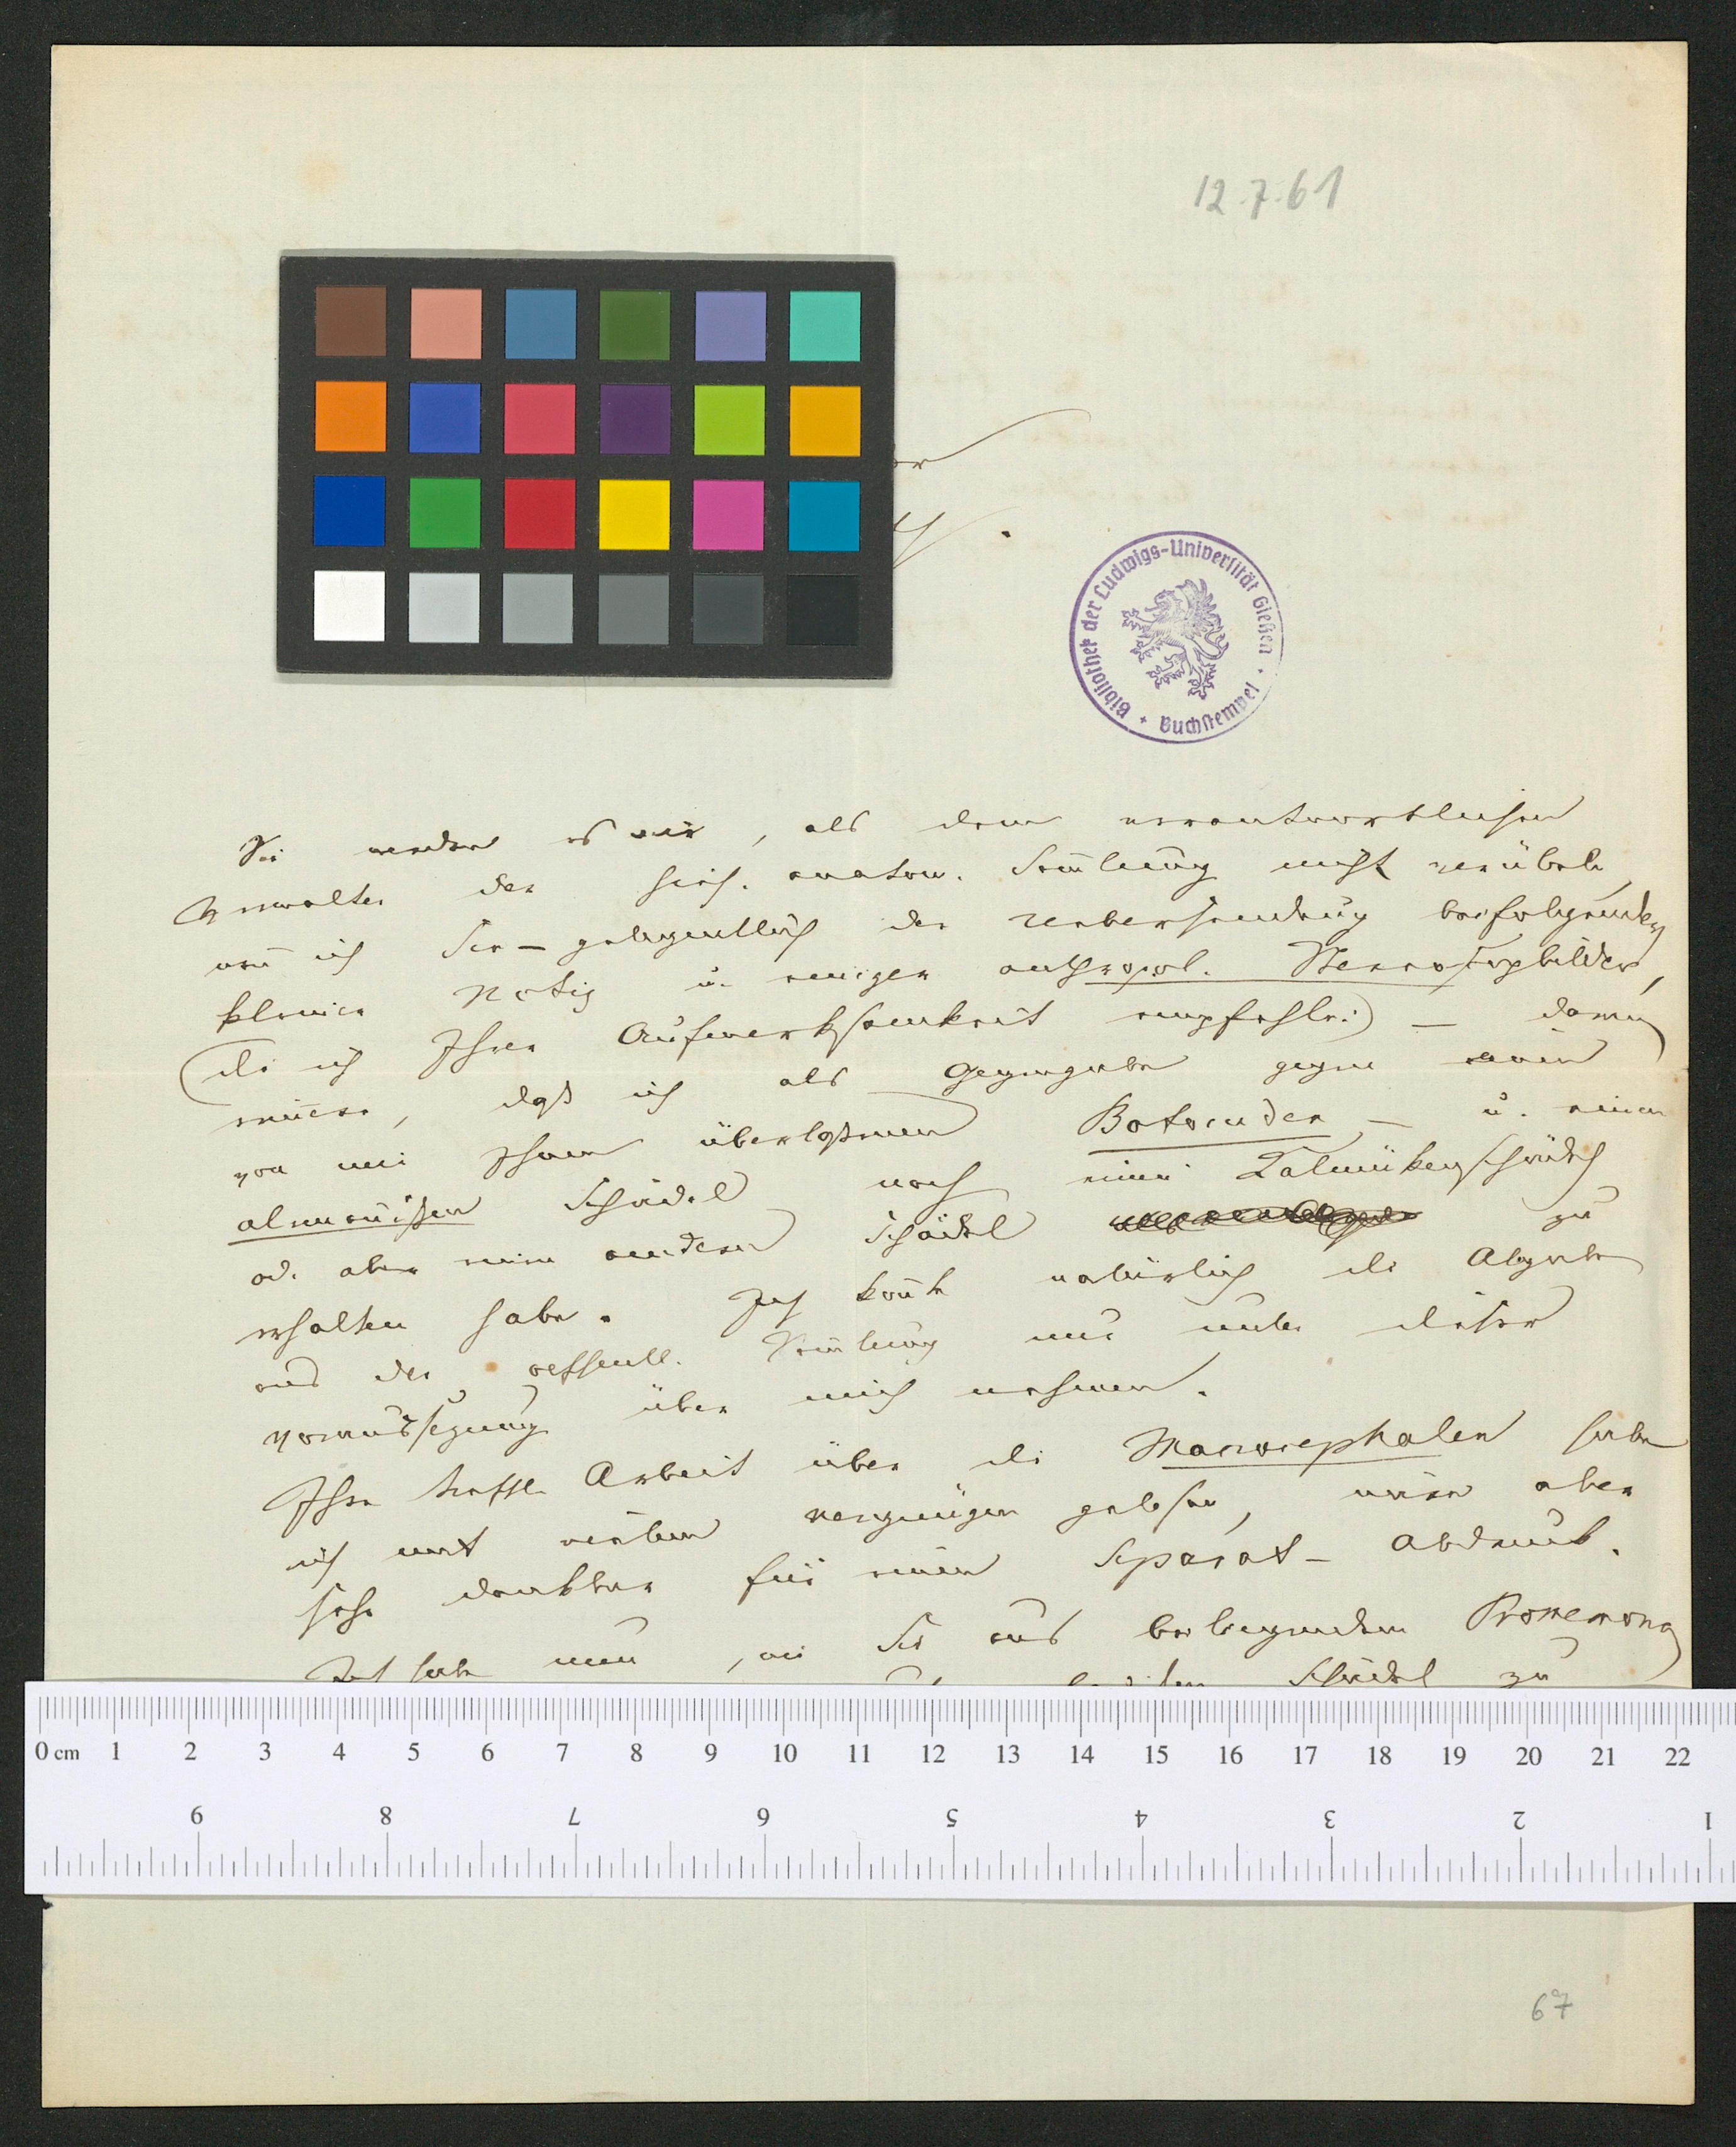 12.7.61
Bibliothek der Ludwigs-Universität Gießen · Buchstempel ·
Sie werden es mir, als dem verantwortlichen
Verwalter der hies. anatom. Sam̄lung nicht verübeln,
wen̄ ich Sie – gelegentlich der Uebersendung beifolgender
kleiner Notiz u. einiger anthropol. Stereoskopbilder,
(die ich Ihrer Aufmerksamkeit empfehle.) – daran
erin̄ere, daß ich als Gegengabe gegen einen
von mir Ihnen überlaßenen Botocuden – u. einen
Schädel noch einen Kalmükenschädel
od. aber einen anderen Schädel zu
erhalten habe. Ich kon̄te natürlich die Abgabe
aus der oeffentl. Sam̄lung nur unter dieser
Voraussetzung über mich nehmen.
Ihre treffl. Arbeit über die Macrocephalen habe
ich mit vielem Vergnügen gelesen, wäre aber
sehr dankbar für einen Separat-Abdruck.
Ich habe nun, wie Sie aus beiliegendem
Schädel zu
0 cm 1 2 3 4 5 6 7 8 9 10 11 12 13 14 15 16 17 18 19 20 21 22
9 8 7 6 5 4 3 2 1
67